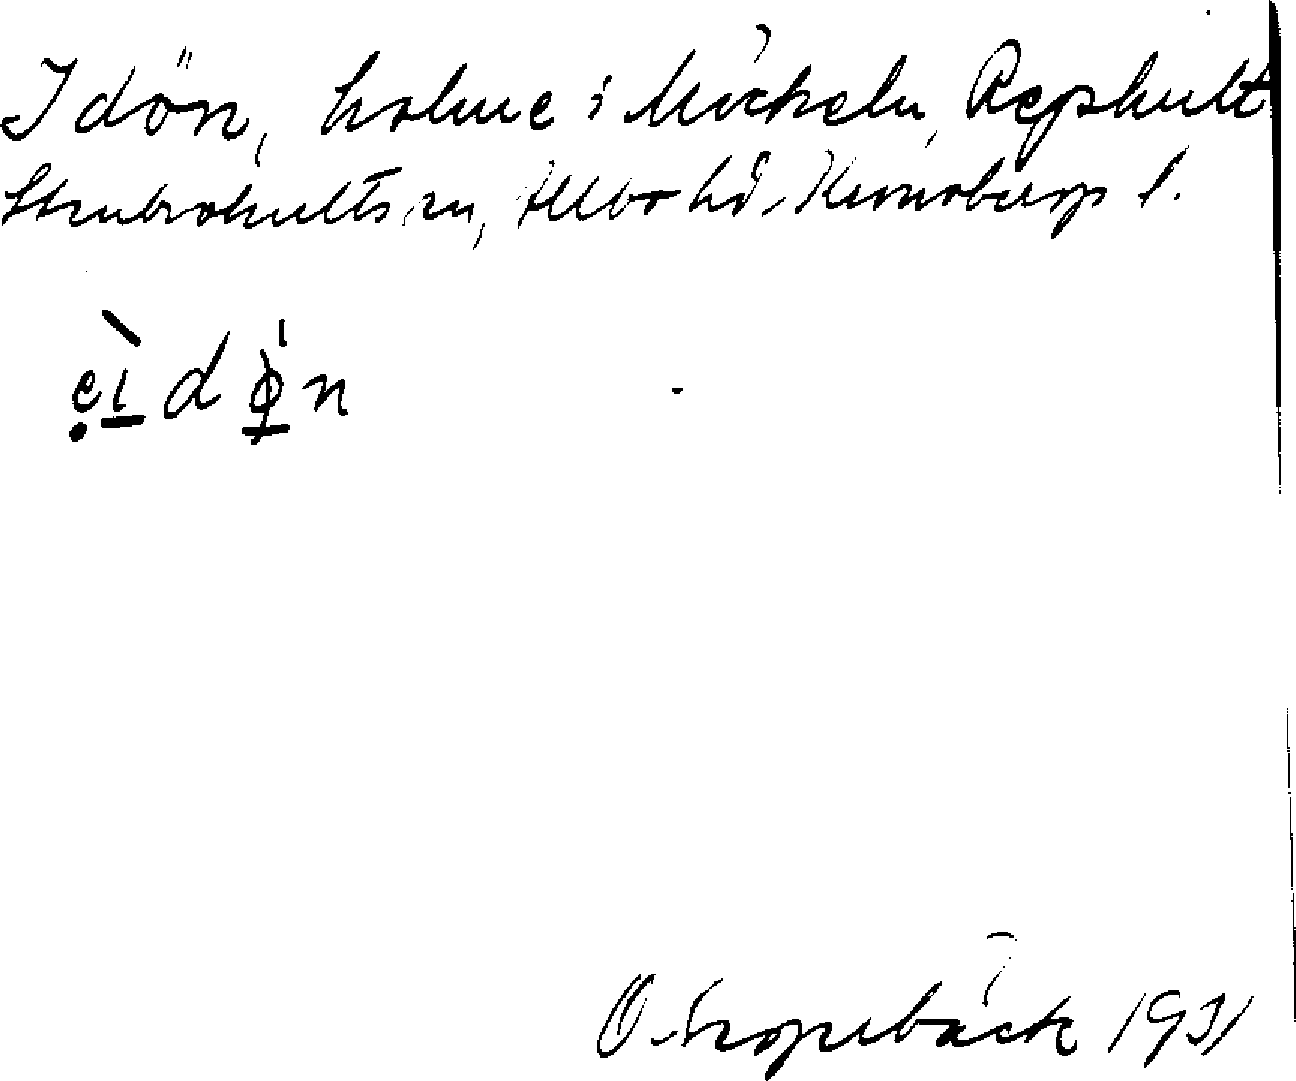 Idön, holme i Möckeln, Repshult
Stenbrohults sn, Allbo hd, Kronobergs l.
ei d ø n
1931